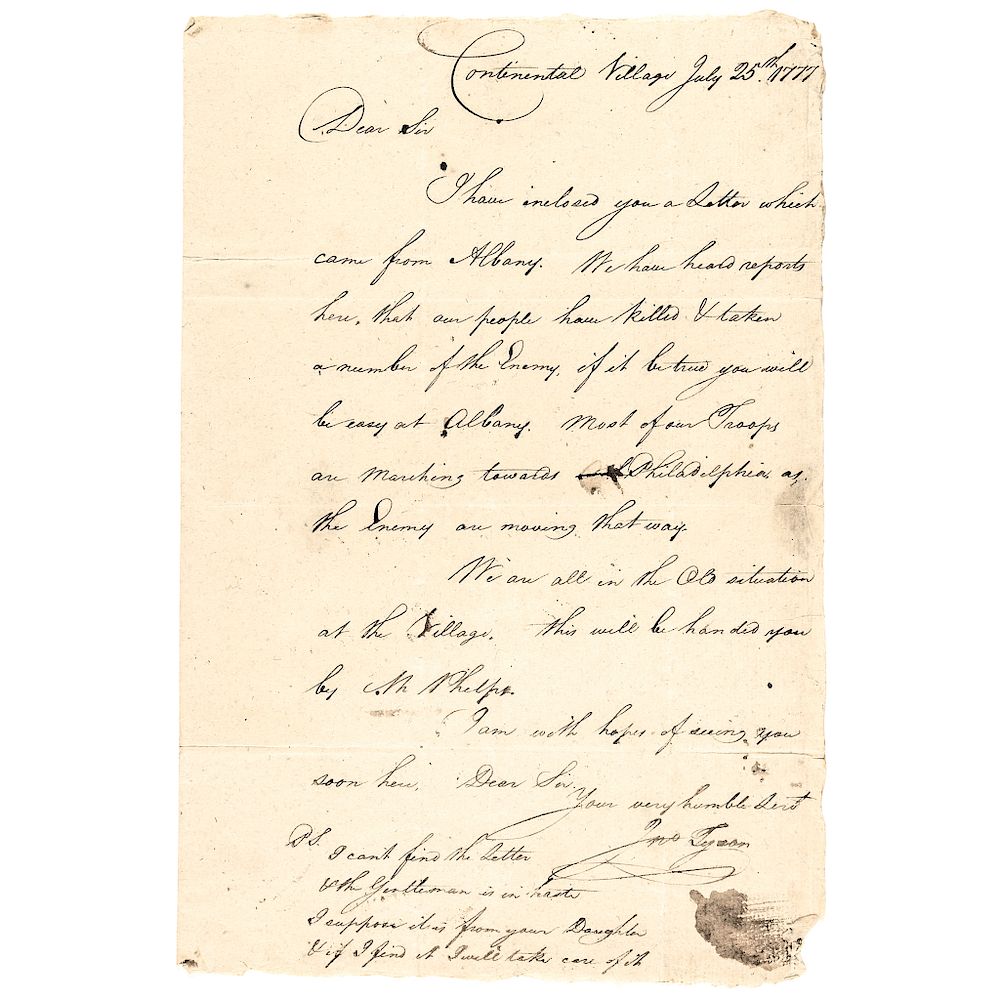 Continental Village July 25th. 1777
Dear Sir
I have inclosed you a Letter which
came from Albany. We have heard reports
here, that our people have killed & taken
a number of the Enemy, if it be true you will
be easy at Albany. Most of our Troops
are marching towards Philadelphia, as,
the Enemy are moving that way.
We are all in the Old situation
at the Village. this will be handed you
by Mr Phelps.
I am with hopes of seeing you
soon here, Dear Sir,
Your very humble Servt
Jno Tyson
PS.
I cant find the Letter
& the Gentleman is in haste
I suppose it is from your Daughter
& if I find it I will take care of it